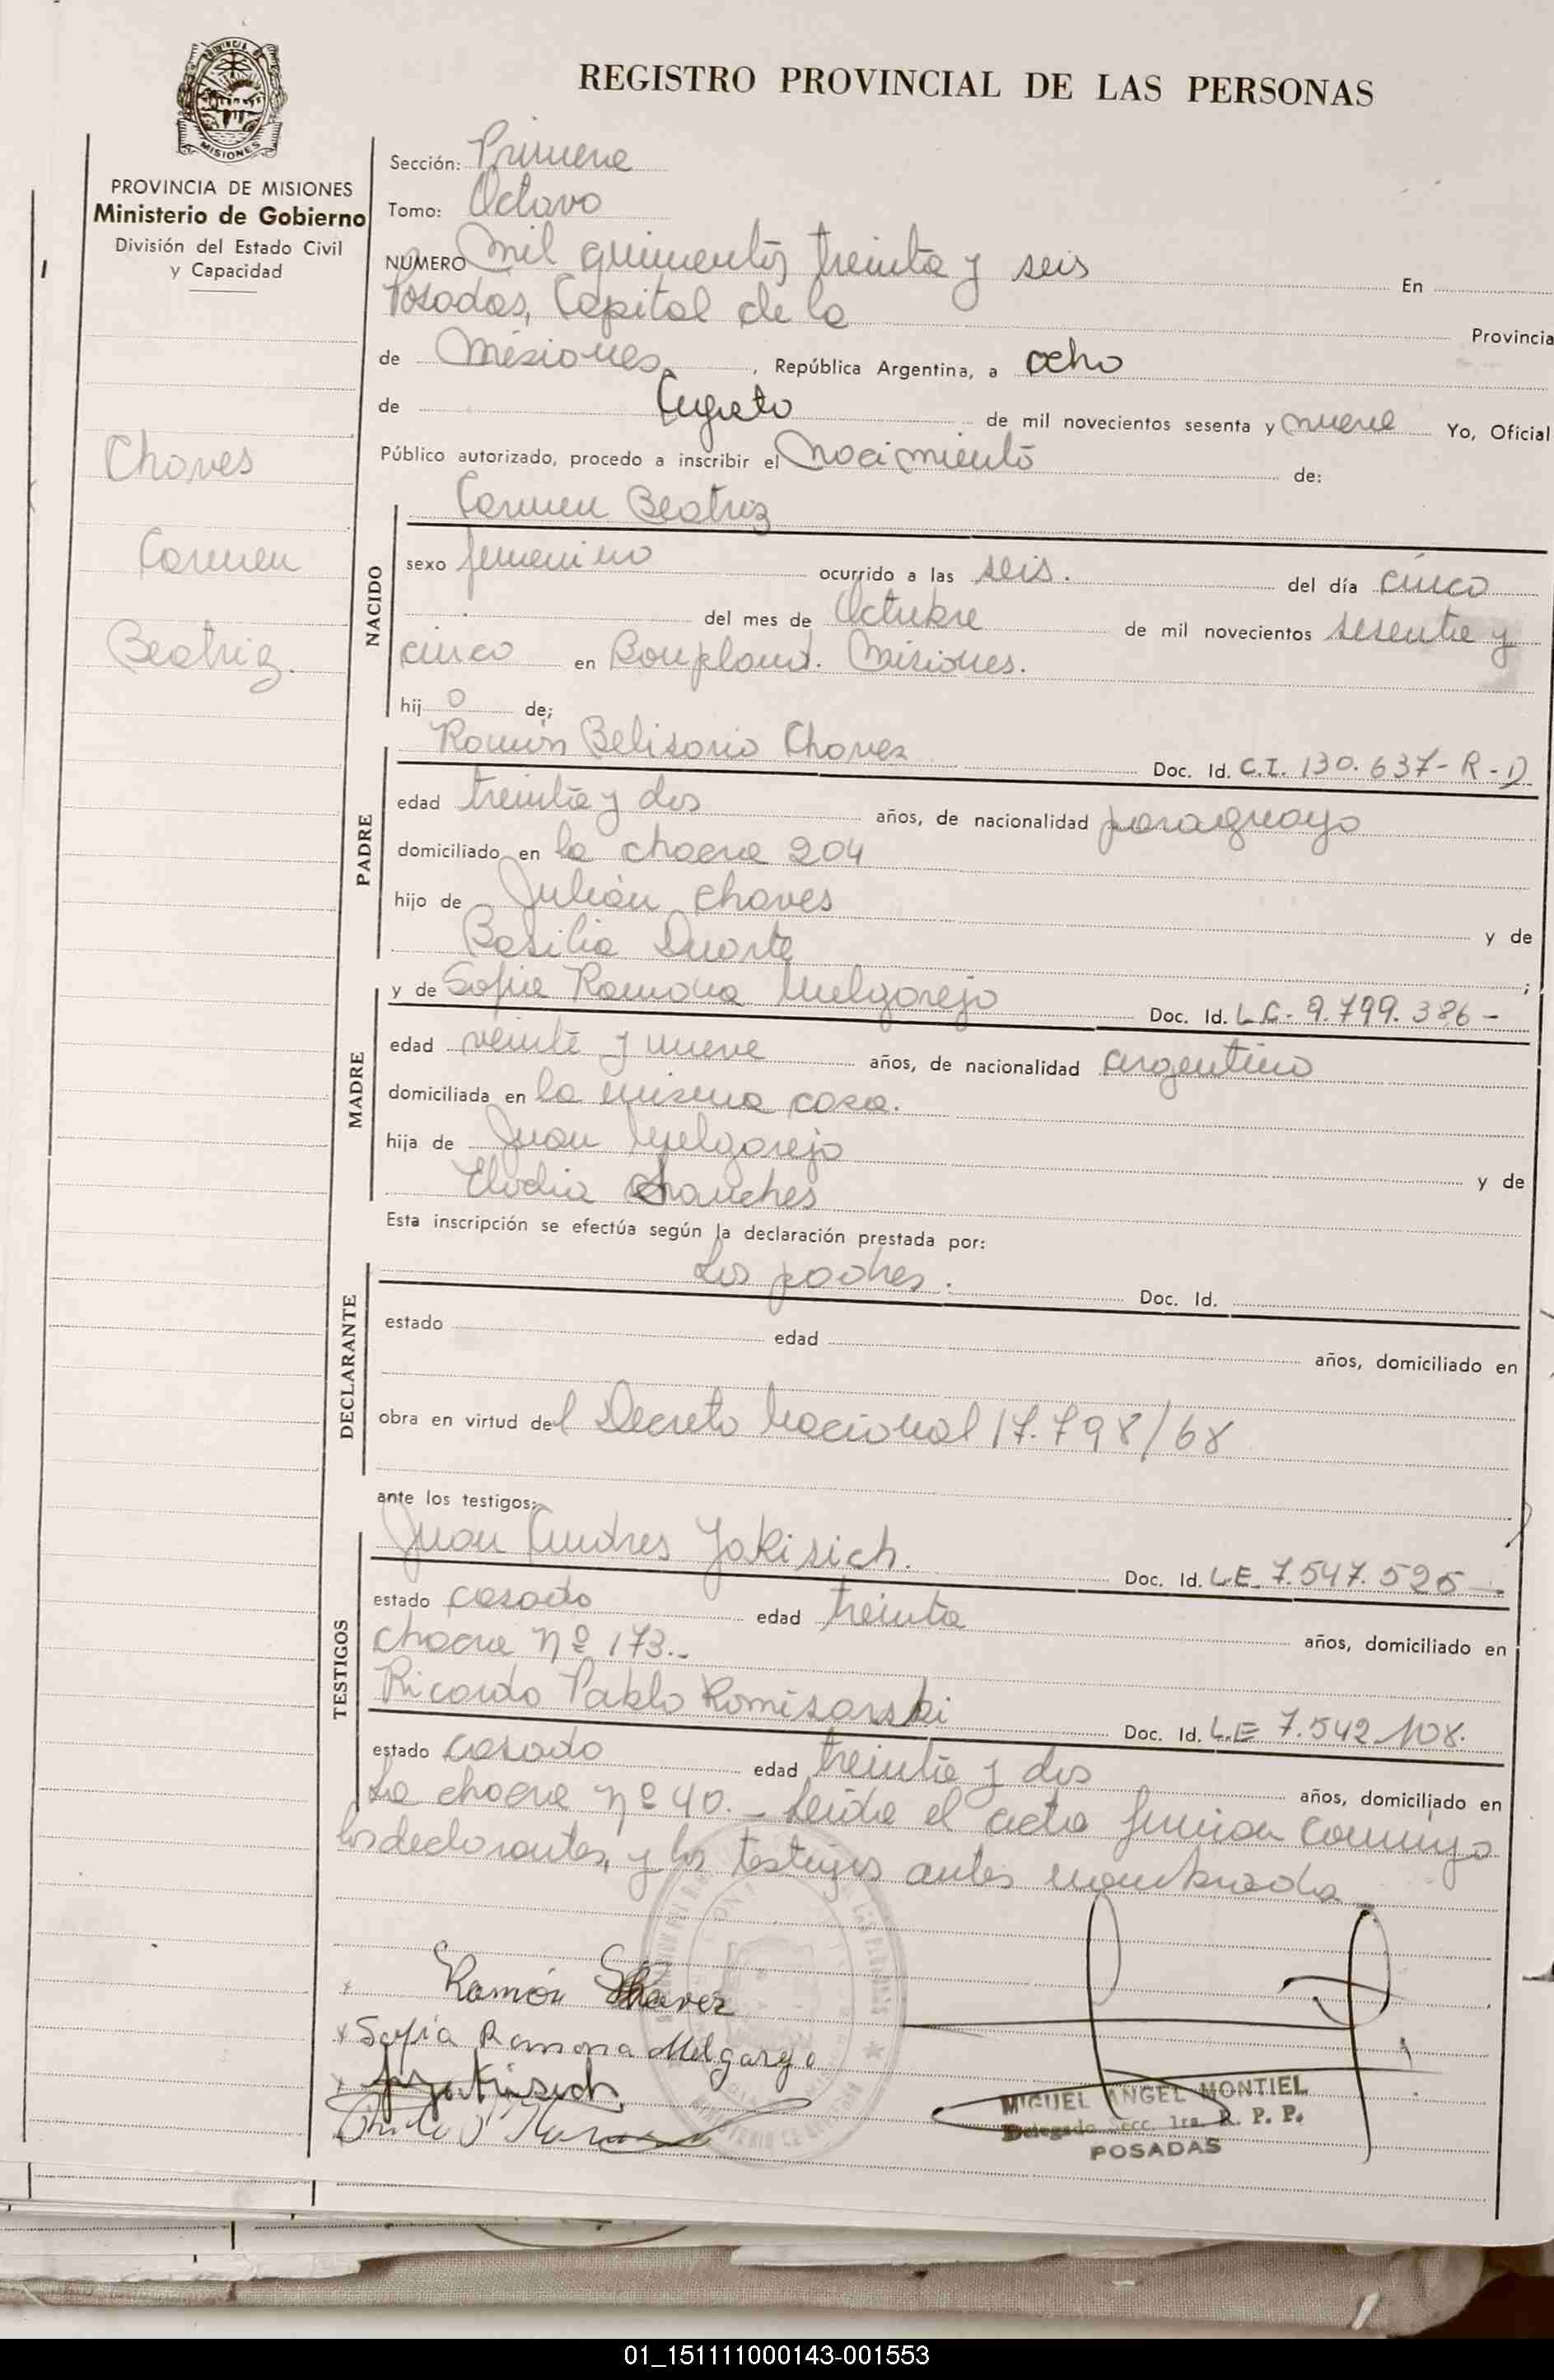 REGISTRO PROVINCIAL DE LAS PERSONAS
MISIONES
PROVINCIA DE MISIONES
Ministerio de Gobierno
División del Estado Civil
y Capacidad
Chaves
Carmen
Beatriz.
Sección: Primera
Tomo: Octavo
NUMERO Mil quinientos treinta y seis En
Posadas, Capital de la Provincia
de Misiones, República Argentina, a ocho
de Agosto de mil novecientos sesenta y nueve Yo, Oficial
Público autorizado, procedo a inscribir el Nacimiento de:
NACIDO
Carmen Beatriz
sexo femenino ocurrido a las seis. del día cinco
del mes de Octubre de mil novecientos sesenta y
cinco en Bonpland. Misiones.
hij a de;
PADRE
Ramón Belisario Chavez Doc. Id. C.I. 130.637-R-D
edad treinta y dos años, de nacionalidad paraguayo
domiciliado en la chacra 204
hijo de Julián Chaves y de
Basilia Duarte ;
MADRE
y de Sofia Ramona Melgarejo Doc. Id. L.C. 9.799.386-
edad veinte y nueve años, de nacionalidad argentina
domiciliada en la misma casa.
hija de Juan Melgarejo y de
Elodia Sanches
Esta inscripción se efectúa según la declaración prestada por:
DECLARANTE
Los padres. Doc. Id.
estado edad años, domiciliado en
obra en virtud del Decreto Nacional 17.798/68
ante los testigos:
TESTIGOS
Juan Andres Yakisich. Doc. Id. L.E. 7.547.525-.
estado casado edad treinta años, domiciliado en
chacra Nº 173.-
Ricardo Pablo Romisarski Doc. Id. L.E 7.542.108.
estado casado edad treinta y dos años, domiciliado en
La chacra Nº 40.- Leída el acta firman conmigo
los declarantes, y los testigos antes nombrada
Ramón Chavez
Sofía Ramona Melgarejo
MIGUEL ANGEL MONTIEL
Delegado Secc. 1ra. R. P. P.
POSADAS
01_151111000143-001553